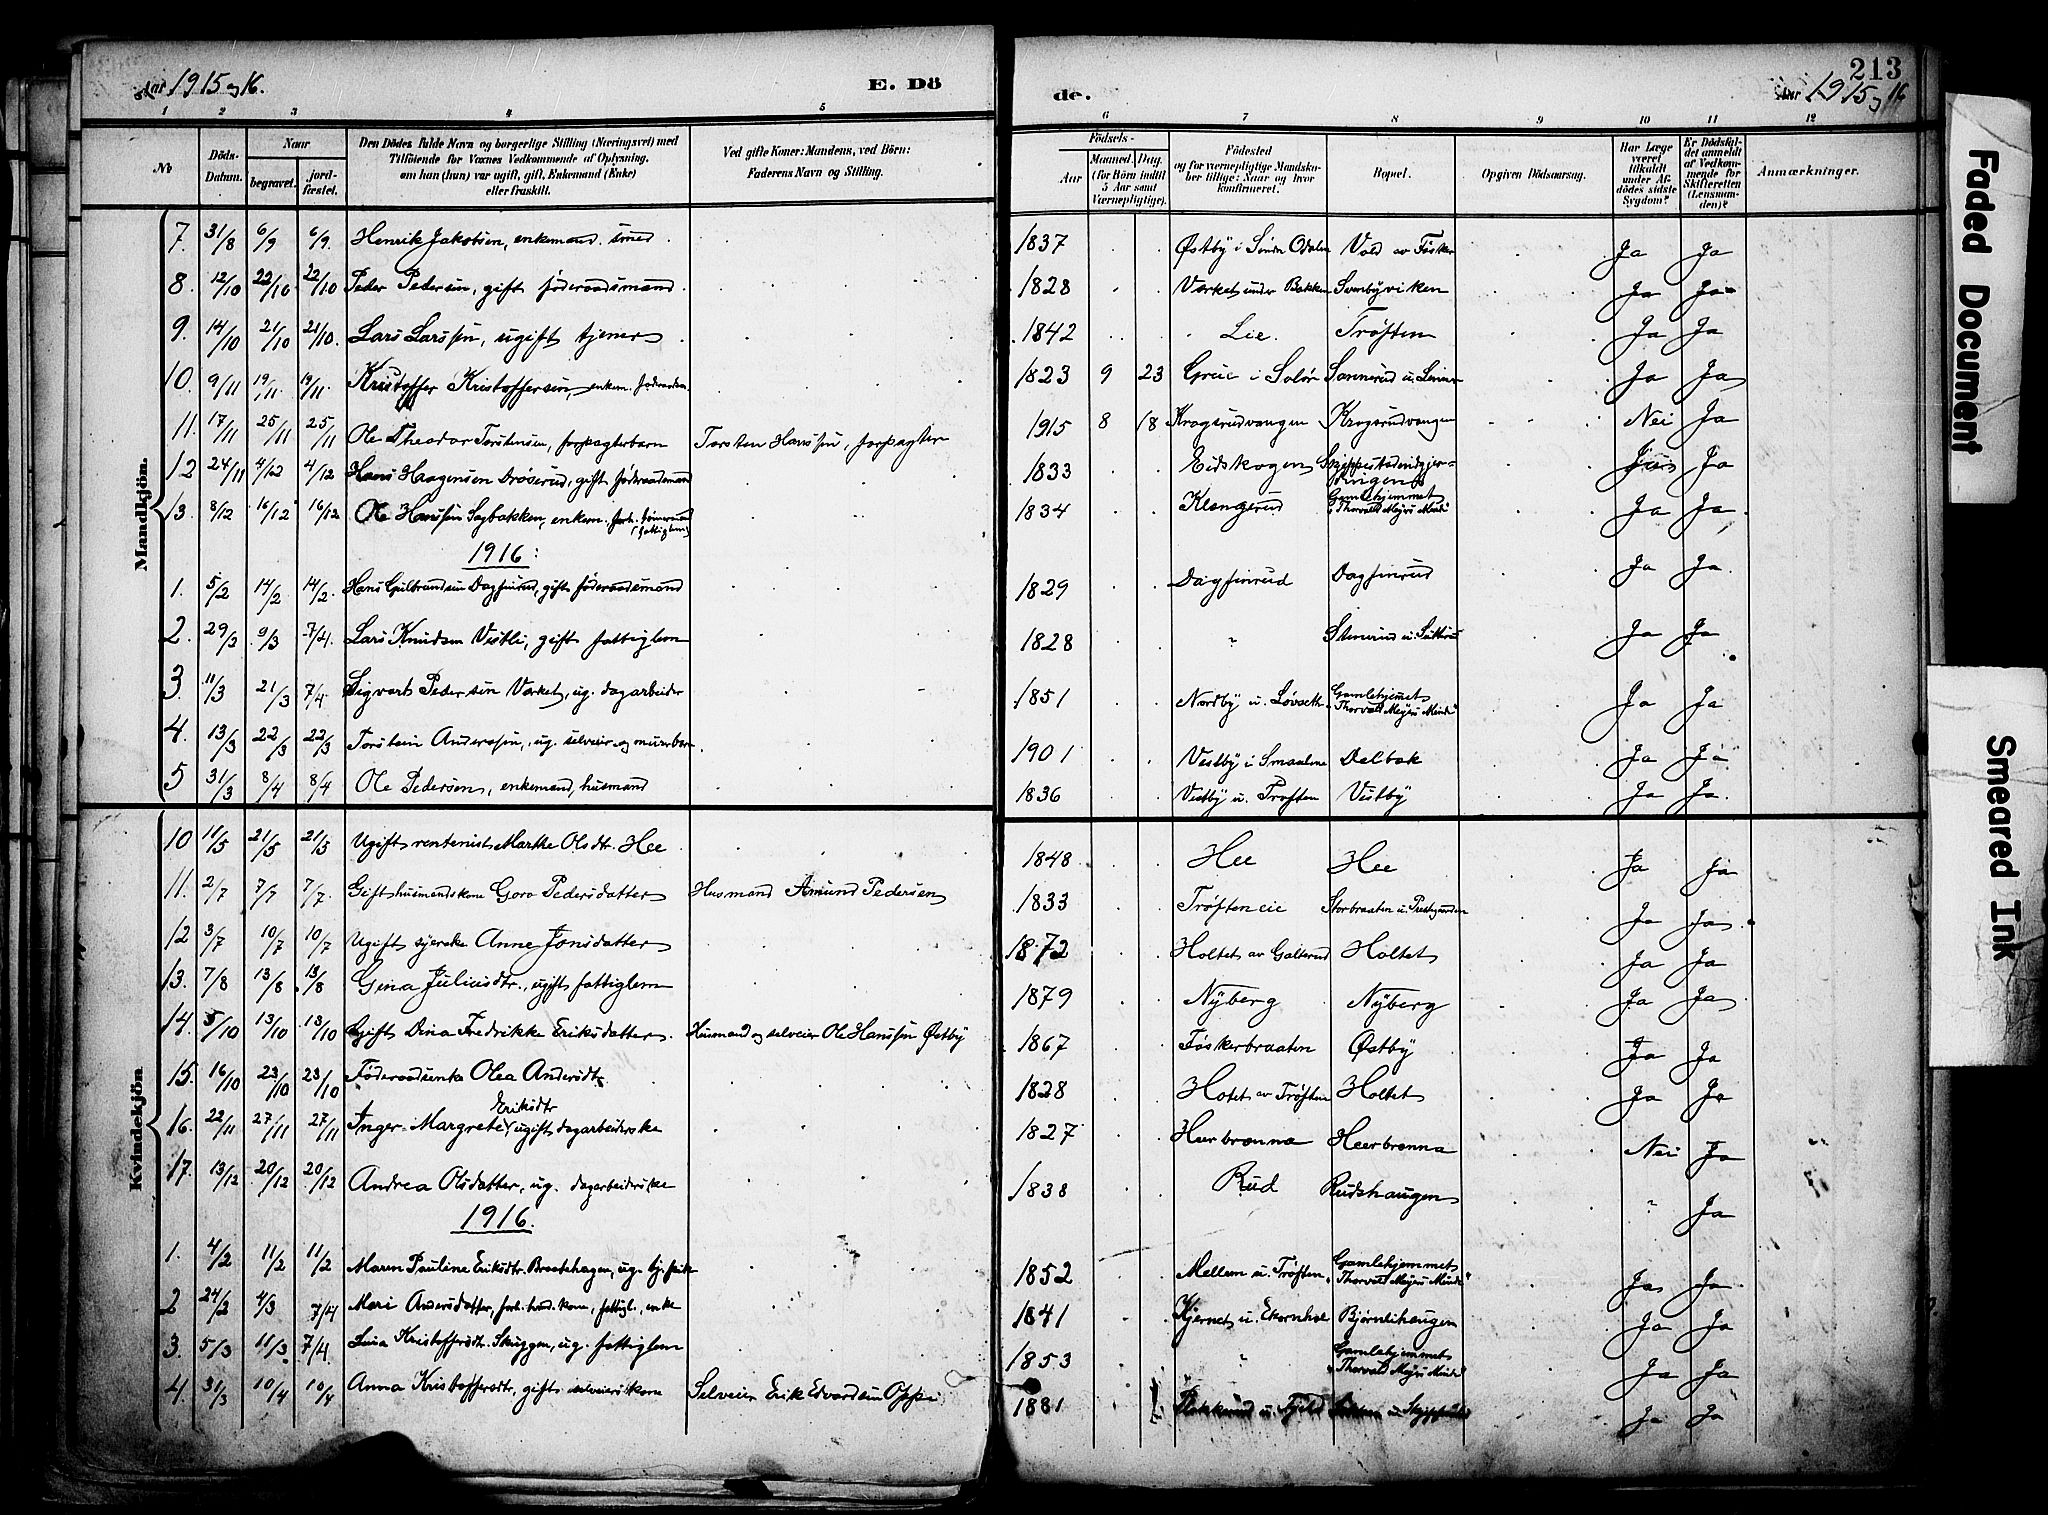 Aar 1915 og 16.
E. Dö
de.
213
Aar 1915 og 16
1 2 3 4 5 6 7 8 9 10 11 12
No
Döds-Datum.
Naar
begravet.
jordfæstet.
Den Dödes fulde Navn og borgerlige Stilling (Næringsvei) med
Tilföiende for Voxnes Vedkommende af Oplysning,
om han (hun) var ugift, gift, Enkemand (Enke)
eller fraskilt.
Ved gifte Koner: Mandens, ved Börn:
Faderens Navn og Stilling.
Födsels-
Aar
Maaned. Dag.
(for Börn indtil
5 Aar samt
Værnepligtige).
Födested
og for værnepligtige Mandskaber tillige: Naar og hvor
konfirmeret.
Bopæl.
Opgiven Dödsaarsag.
Har Læge
været
tilkaldt
under Afdödes sidste
Sygdom?
Er Dödsfaldet anmeldt
af Vedkommende for
Skifteretten
(Lensmanden)?
Anmærkninger.
Mandkjön.
7. 31/8 6/9 6/9 Henrik Jakobsen, enkemand. smed 1837 Østby i Søndre Odalen Vold av Føsker Ja Ja
8. 12/10 22/10 22/10 Peder Pedersen, gift føderaadsmand 1828 Værket under Bakken Svenbyviken Ja Ja
9. 14/10 21/10 21/10 Lars Larssen, ugift tjener 1842 Lie. Trøften Ja Ja
10. 9/11 19/11 19/11 Kristoffer Kristoffersen, enkem. føderaadsm. 1823 9 23 Grue i Solør Ja Ja
11. 17/11 25/11 25/11 Ole Theodor Torstensen, forpagterbarn Torsten Hanssen, forpagter 1915 8 18 Krogsrudvangen Krogsrudvangen Nei Ja
12 24/11 4/12 4/12 Hans Haagensen Drøserud, gift føderaadsmand 1833 Eidskogen Ja Ja
13. 8/12 16/12 16/12 Ole Hanssen Sagbakken, enkem. (fattiglem) 1834 Klengerud Gamlehjemmet "Thorvald Meyers Minde" Ja Ja
1916:
1. 5/2 14/2 14/2 Hans Gulbrandsen Dagfinrud, gift føderaadsmand 1829 Dagfinrud Dagfinrud Ja Ja
2. 29/2 9/3 7/4. Lars Knudsen Vestli, gift fattiglem 1828 " Ja Ja
3. 11/3 21/3 7/4 Sigvart Pedersen Værket, ug. dagarbeider 1851 Nordby u. Løvseth Gamlehjemmet "Thorvald Meyers Minde" Ja Ja
4. 13/3 22/3 22/3 Torstein Anderssen, ug. selveier og murerbarn 1901 Vestby i Smaalene Dalbak Ja Ja
5 31/3 8/4 8/4 Ole Pedersen, enkemand, husmand 1836 Vestby u. Trøften Vestby Ja Ja.
Kvindekjön.
10 11/5 21/5 21/5 Ugift rentenist Marthe Olsdt. Hee 1848 Hee Hee Ja Ja
11. 2/7 7/7 7/7. Gift husmandskone Goro Pedersdatter Husmand Amund Pedersen 1833 Trøfteneie Storbraaten u. Prestgaarden Ja Ja
12 3/7 10/7 10/7 Ugift syerske Anne Jonsdatter 1872 Holtet av Galterud Holtet Ja Ja
13. 7/8 13/8 13/8 Gina Juliusdtr., ugift fattiglem 1879 Nyberg Nyberg Ja Ja
14. 5/10 13/10 13/10 Gift Dina Fredrikke Eriksdatter. Husmand og selveier Ole Hanssen Østby 1867 Føskerbraaten Østby Ja Ja
15. 16/10 23/10 23/10 Føderaadsenke Olea Andersdt. 1828 Hotet av Trøften Holtet Ja Ja
16. 22/11 27/11 27/11 Inger Margrete Eriksdtr ugift dagarbeiderske 1827 Heerbrønna Heerbrønna Nei Ja
17. 13/12 20/12 20/12 Andrea Olsdatter, ug. dagarbeiderske 1838 Rud Rudshaugen " Ja
1916.
1. 4/2 11/2 11/2 Maren Pauline Eriksdtr. Braatehagen, ug. 1852 Mellem u. Trøften Gamlehjemmet "Thorvald Meyers Minde" Ja Ja
2 24/2 4/3 7/4 Mari Andersdatter, fattigl., enke 1841 Kjernet u. Ekornhol Bjørnlihaugen Ja Ja
3. 5/3 11/3. 7/4. Lina Kristoffersdtr. Skyggen, ug. fattiglem 1853 " Gamlehjemmet "Thorvald Meyers Minde" Ja Ja
4. 31/3 10/4 10/4 Anna Kristoffersdtr, gift selveierskone Selveier Erik Edvardsen Oppi 1881 Ja Ja
Faded Document
Smeared Ink